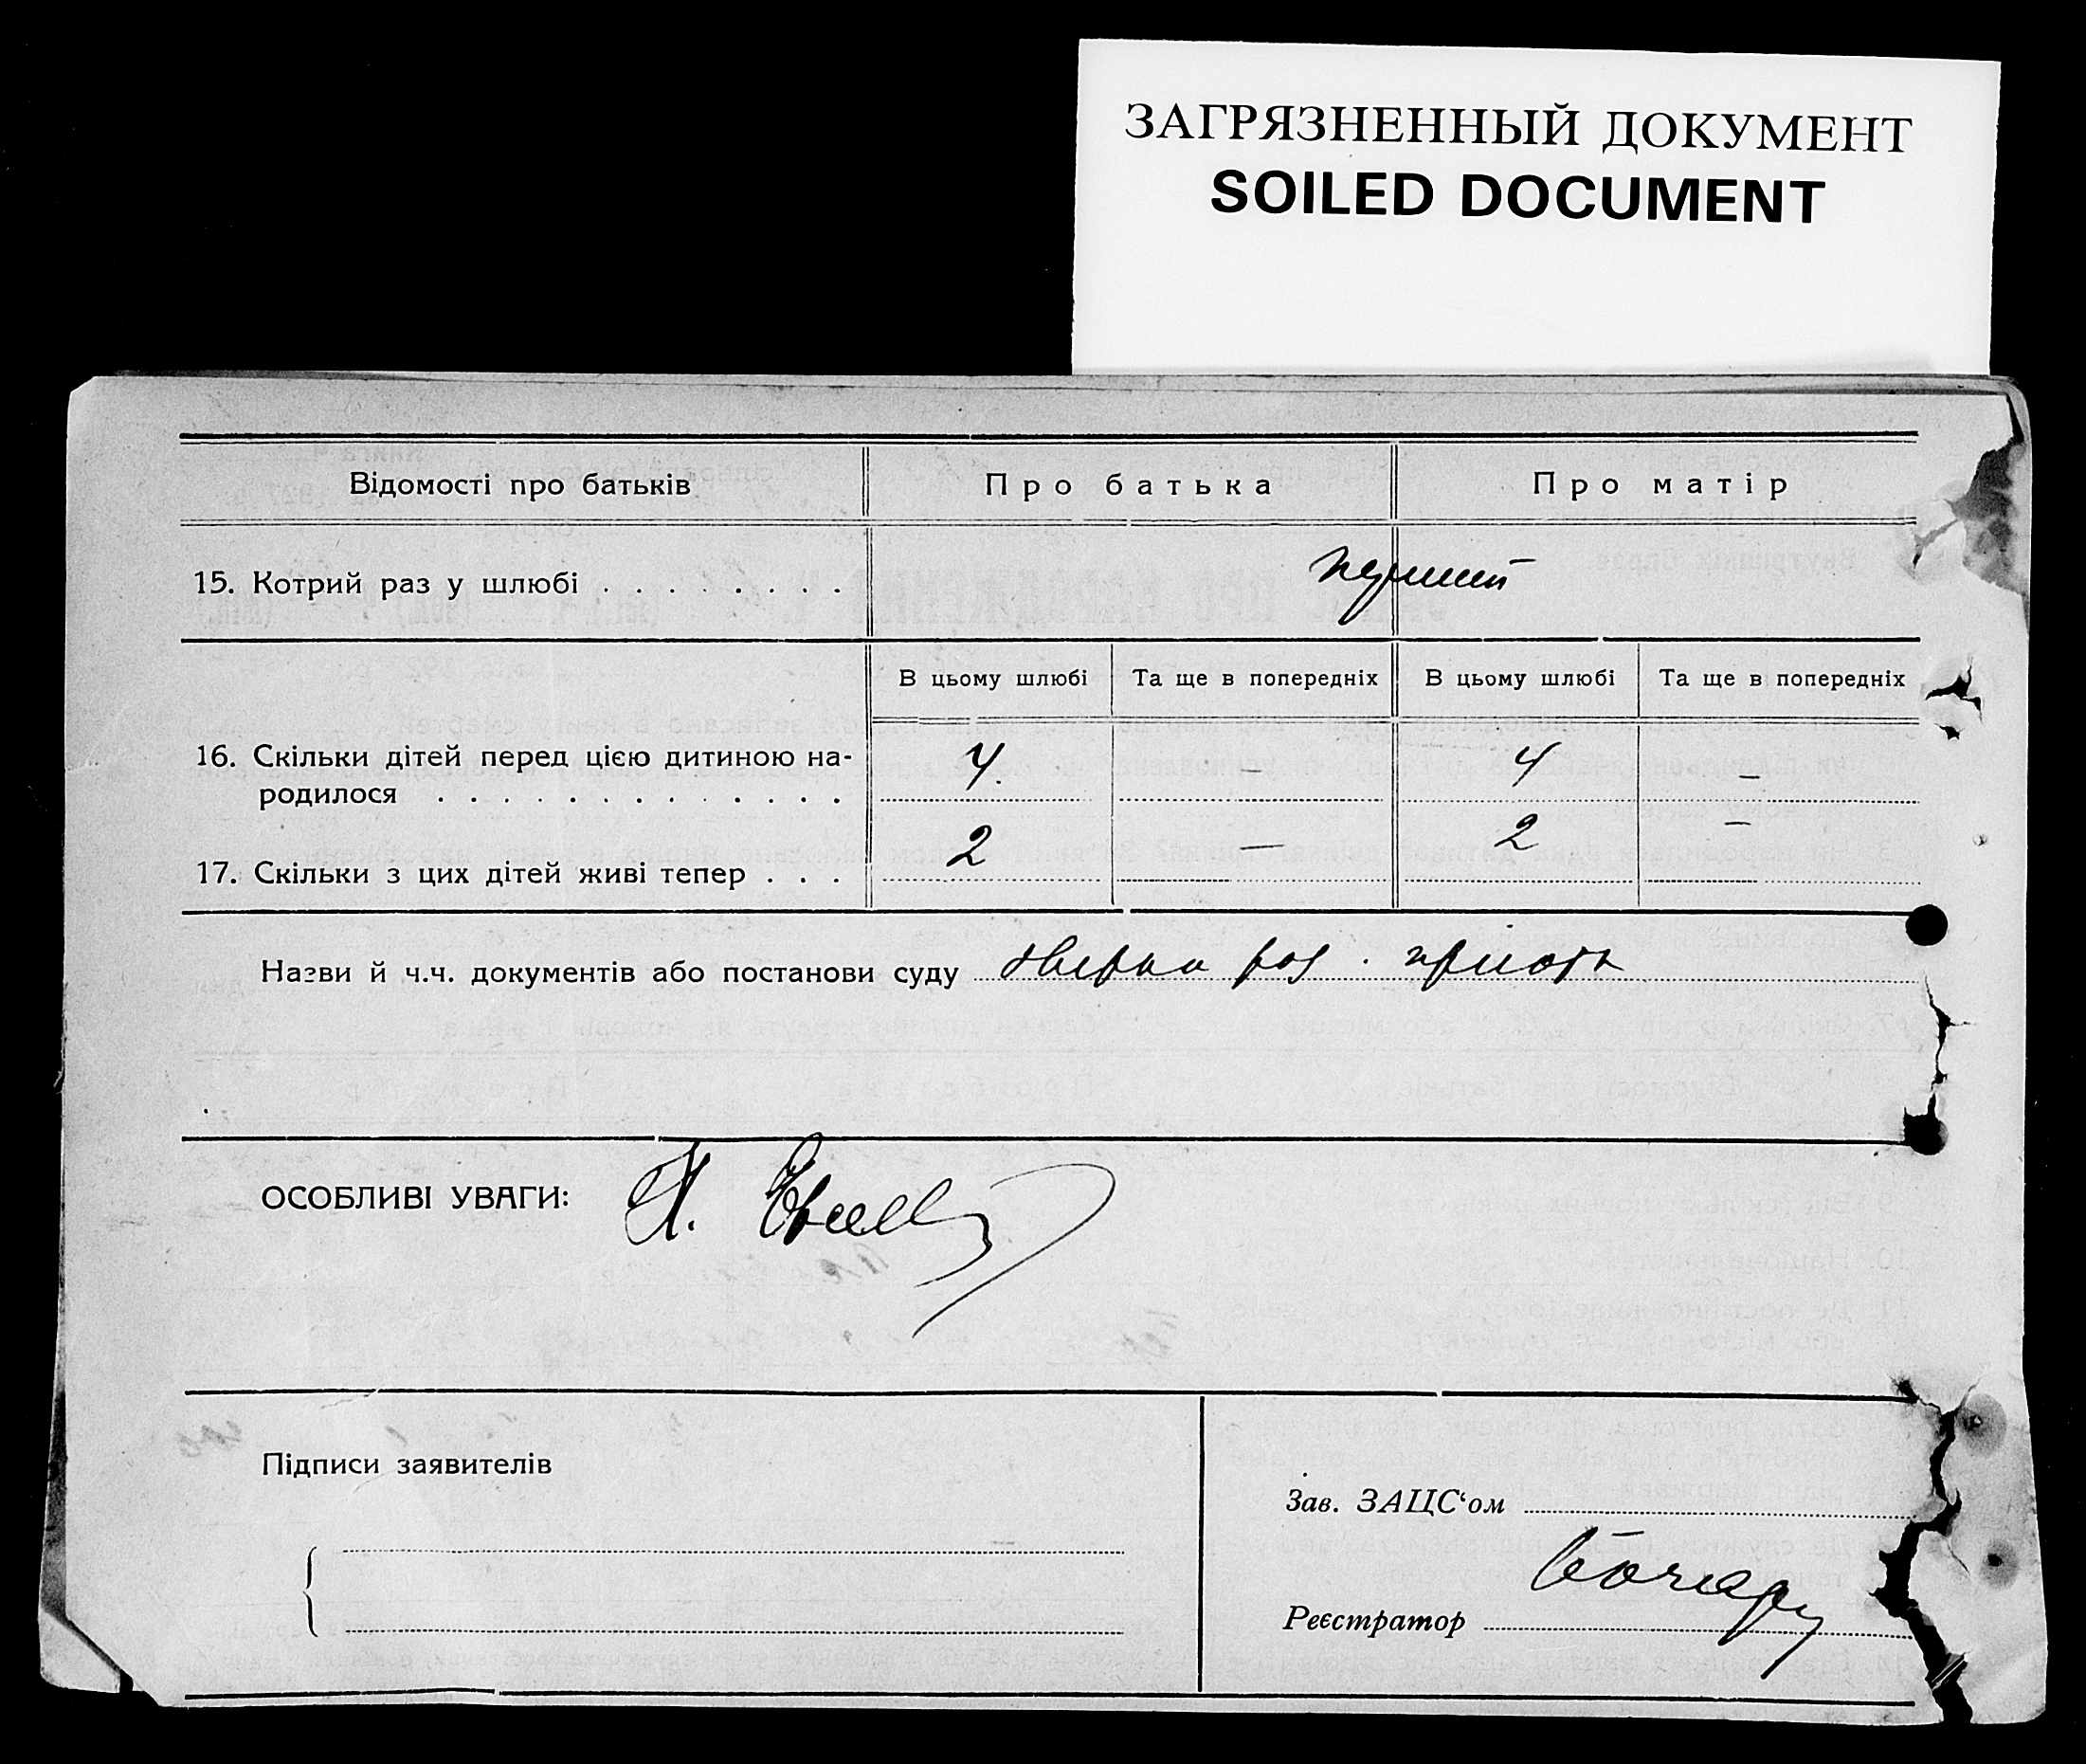 ЗАГРЯЗНЕННЫЙ ДОКУМЕНТ
SOILED DOCUMENT
Відомості про батьків Про батька Про матір
15. Котрий раз у шлюбі . . . . . . . . перший
В цьому шлюбі Та ще в попередніх В цьому шлюбі Та ще в попередніх
16. Скільки дітей перед цією дитиною на-
родилося . . . . . . . . . . . . . 4 – 4 –
17. Скільки з цих дітей живі тепер . . . 2 – 2 –
Назви й ч.ч. документів або постанови суду
ОСОБЛИВІ УВАГИ:
Підписи заявителів
Зав. ЗАЦС‘ом
Реєстратор